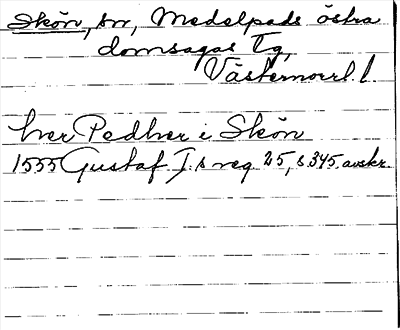 Skön, sn, Medelpads östra
domsagas tg,
Västernorrl. l.
her Pedher i Skön
1555 Gustaf I:s reg. 25, s 345. avskr.